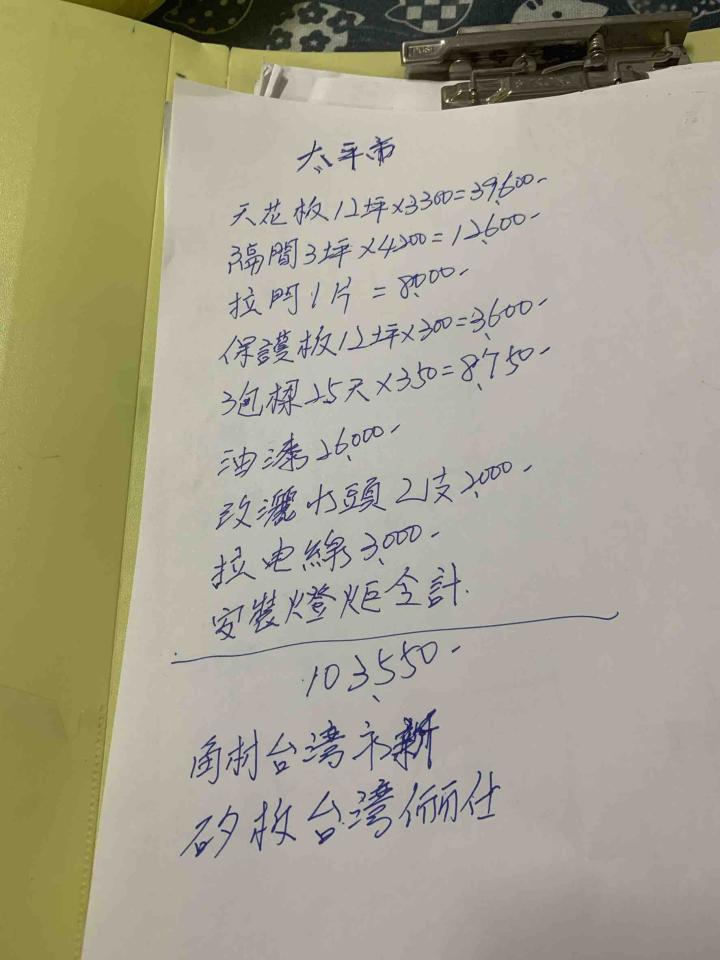 太平市
天花板12坪×3300=39,600-
隔間3坪×4200=12,600-
拉門1片=8,000-
保護板12坪×300=3,600-
包樑25尺×350=8,750-
油漆26,000-
改灑水頭2支2,000-
拉电線3,000-
安裝燈炬全計.
103,550-
角材台湾永新
矽板台湾儷仕